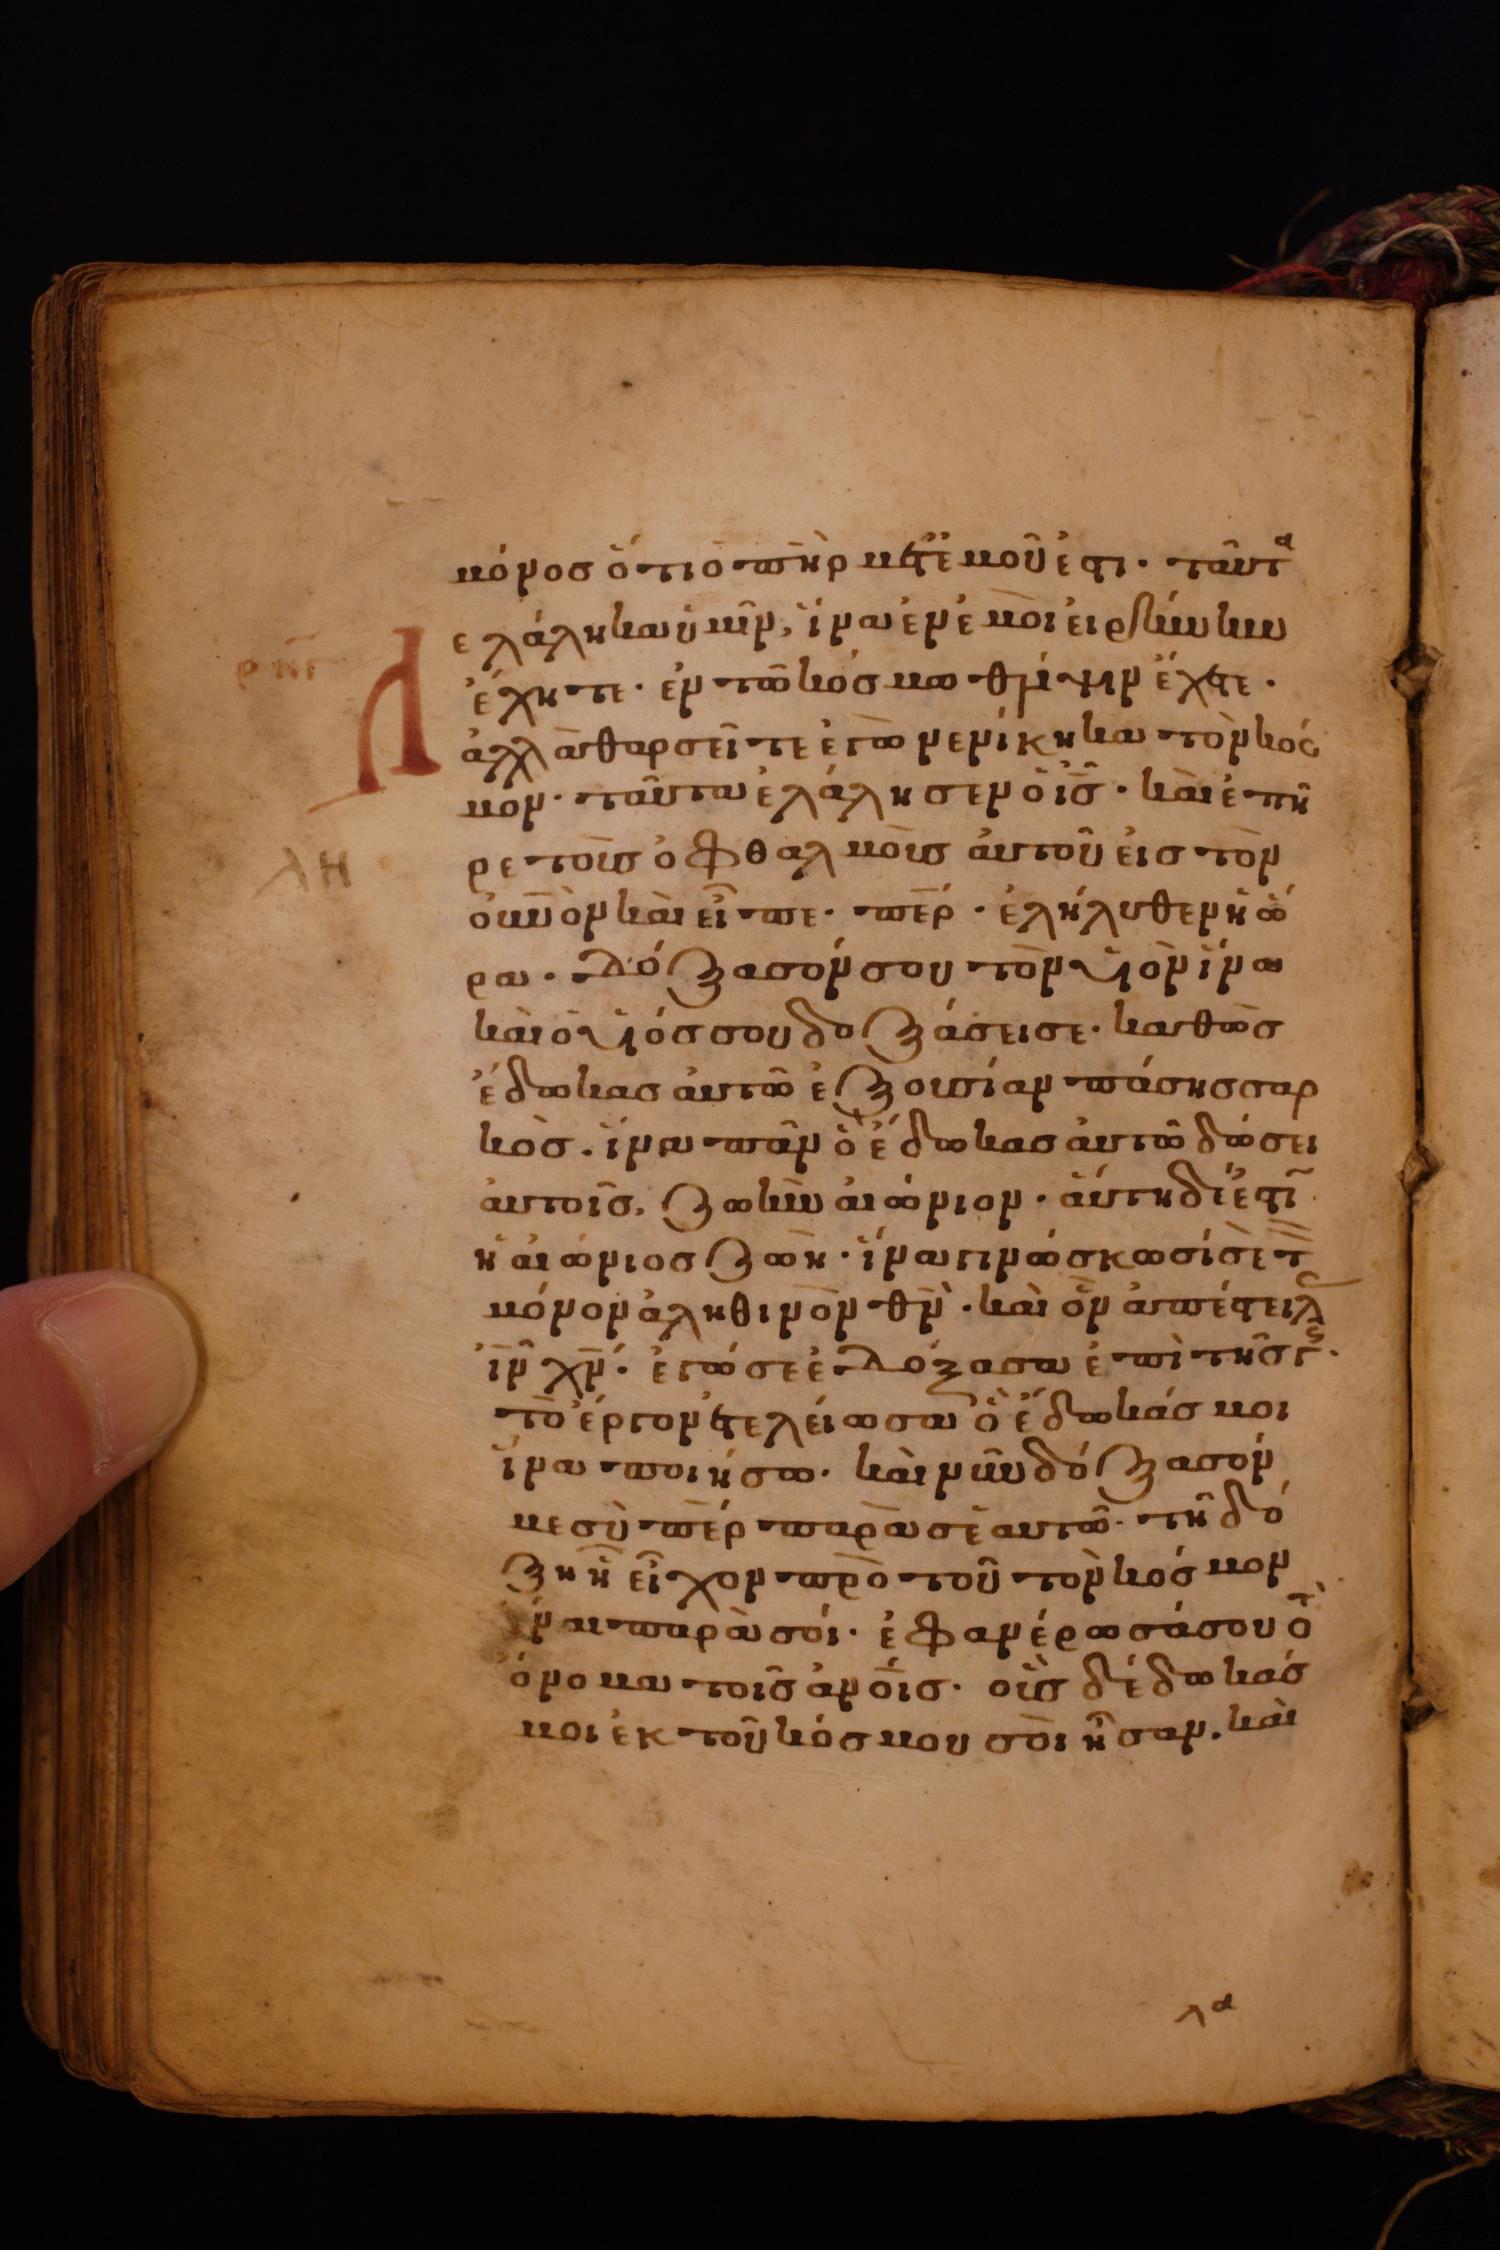 μόνος ὅτι ὁ πηρ μετ ἐμοῦ ἐστι · ταῦτα
ελάληκα ὑμῖν, ἵνα ἐν ἐμοὶ εἰρήνην
ἔχητε · ἐν τῶ κόσμω θλίψιν ἔχετε ·
ἀλλὰ θαρσεῖτε ἐγὼ νενίκηκα τὸν κόσ
μον · ταῦτα ἐλάλησεν ὁ ἰς · καὶ ἐπῆ
ρε τοὺς ὀφθαλμοὺς ἀυτοῦ εἰς τὸν
ουνὸν καὶ εἶπε · περ · ἐλήλυθεν ἡ ὥ
ρα · δόξασόν σου τὸν υἱὸν ἵνα
καὶ ὁ υἱός σου δοξάσει σε · καθὼς
ἔδωκας ἀυτῶ ἐξουσίαν πάσης σαρ
κὸς · ἵνα πᾶν ὃ ἔδωκας ἀυτῶ δώσει
ἀυτοῖς, ζωὴν ἀιώνιον · ἅυτη δὲ ἐστὶ
ἡ ἀιώνιος ζωὴ · ἵνα γινώσκωσί σὲ τ
μόνον ἀληθινὸν θν · καὶ ὃν ἀπέστειλ
ιν χν · ἐγώ σε ἐδόξασα ἐπὶ τῆς γῆς ·
τὸ ἔργον ἐτελείωσα ὃ ἔδωκάς μοι
ἵνα ποιήσω · καὶ νῦν δόξασόν
με σὺ περ παρὰ σεαυτῶ · τῆ δό
ξη ἧ εἶχον πρὸ τοῦ τὸν κόσμον
ἶναι παρὰ σοί · ἐφανέρωσά σου τὸ
ὄνομα τοῖς ἀνοις · οὓς δέδωκάς
μοι ἐκ τοῦ κόσμου σοὶ ἦσαν · καὶ
λα